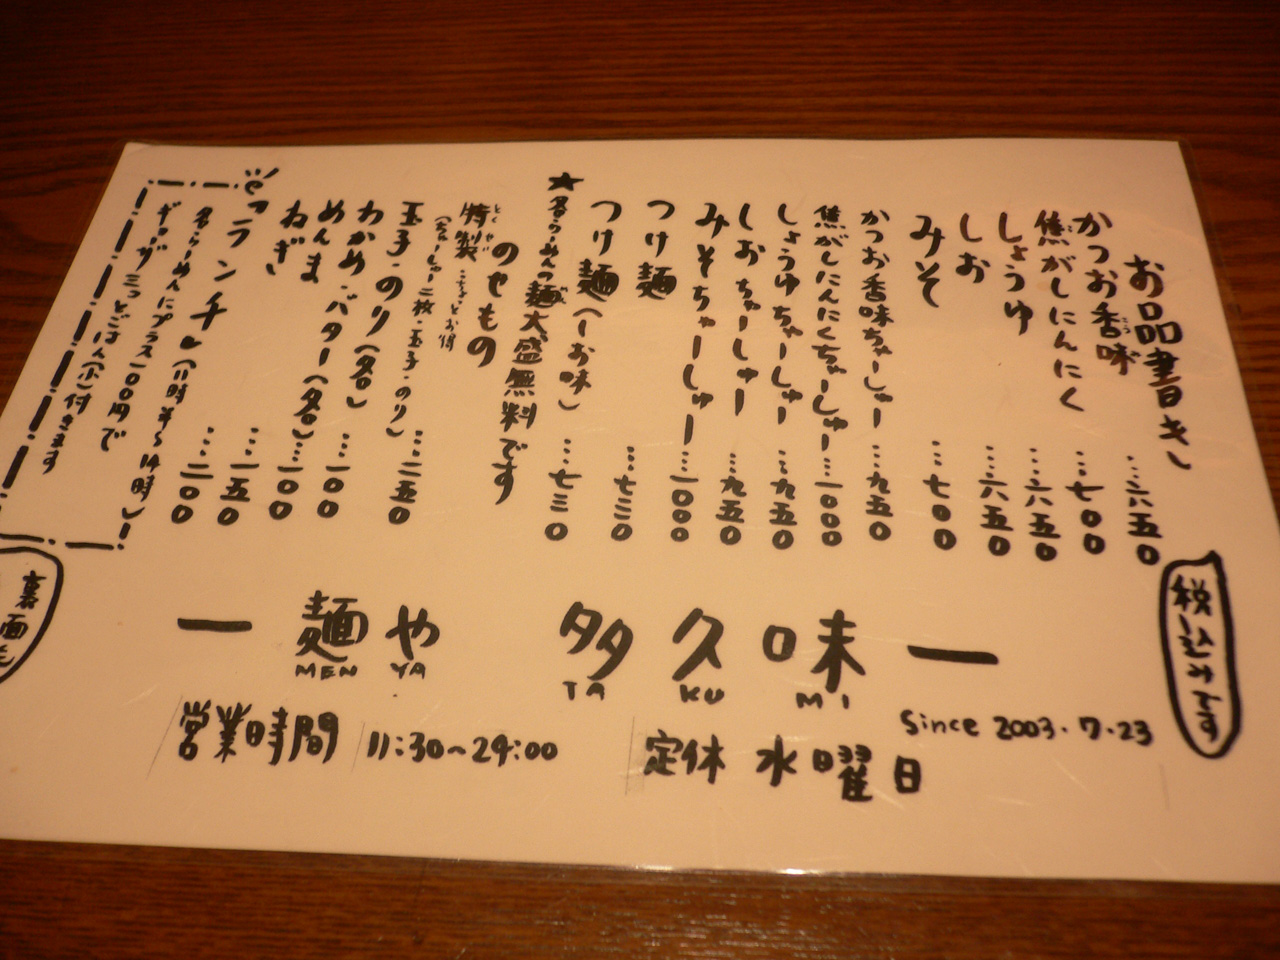 お品書き
かつお香味 …六五〇
焦がしにんにく …七〇〇
しょうゆ …六五〇
しお …六五〇
みそ …七〇〇
かつお香味ちゃーしゅー …九五〇
焦がしにんにくちゃーしゅー …一〇〇〇
しょうゆちゃーしゅー …九五〇
しおちゃーしゅー …九五〇
みそちゃーしゅー …一〇〇〇
つけ麺 …七三〇
つけ麺(しお味) …七三〇
★各らーめんの麺大盛無料です
のせもの
特製 …ちょっとお得
(ちゃーしゅー二枚・玉子・のり) …二五〇
玉子・のり(各) …一〇〇
わかめ・バター(各) …一〇〇
めんま …一五〇
ねぎ …二〇〇
ランチ♥(11時半〜14時)
各らーめんにプラス一〇〇円で
ギョーザ三っとごはん(小)付きます
税込みです
裏面も
― 麺や 多久味 ―
MEN YA TA KU MI
Since 2003.7.23
営業時間 11:30〜24:00
定休 水曜日